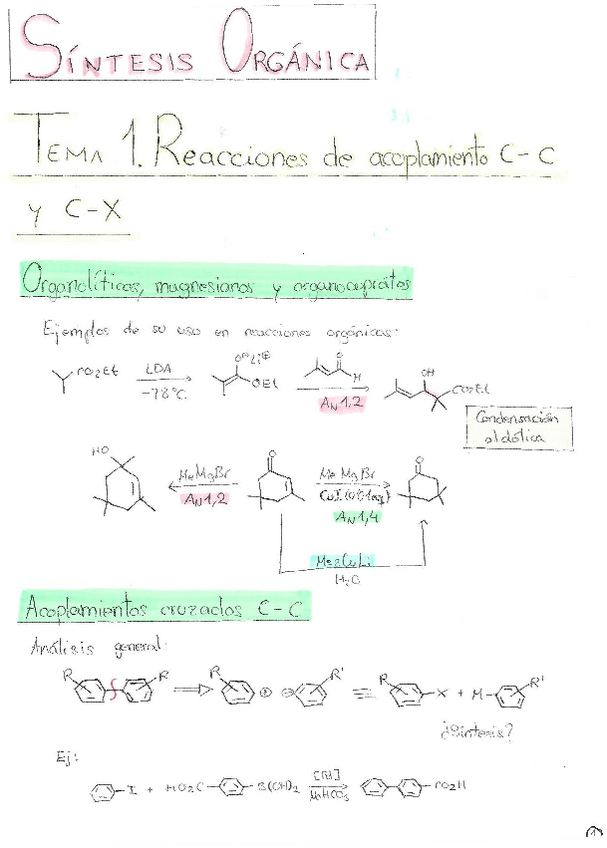 SÍNTESIS ORGÁNICA
TEMA 1. Reacciones de acoplamiento C-C
y C-X
Organolíticos, magnesianos y organocupratos
Ejemplos de su uso en reacciones orgánicas:
CO2Et LDA -78°C O⊖Li⊕ OEt O H AN1,2 OH CO2Et
Condensación
aldólica
HO MeMgBr AN1,2 O MeMgBr CuI (0,01eq) AN1,4 O
Me2CuLi
H2O
Acoplamientos cruzados C-C
Análisis general:
R R ⟹ R ⊕ ⊖ R' ≡ R X + M R'
¿Síntesis?
Ej:
I + HO2C B(OH)2 [Pd] NaHCO3 CO2H
1